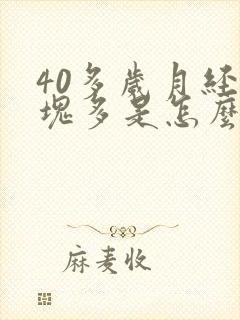 40多歲月經
塊多是怎麼
麻麦收